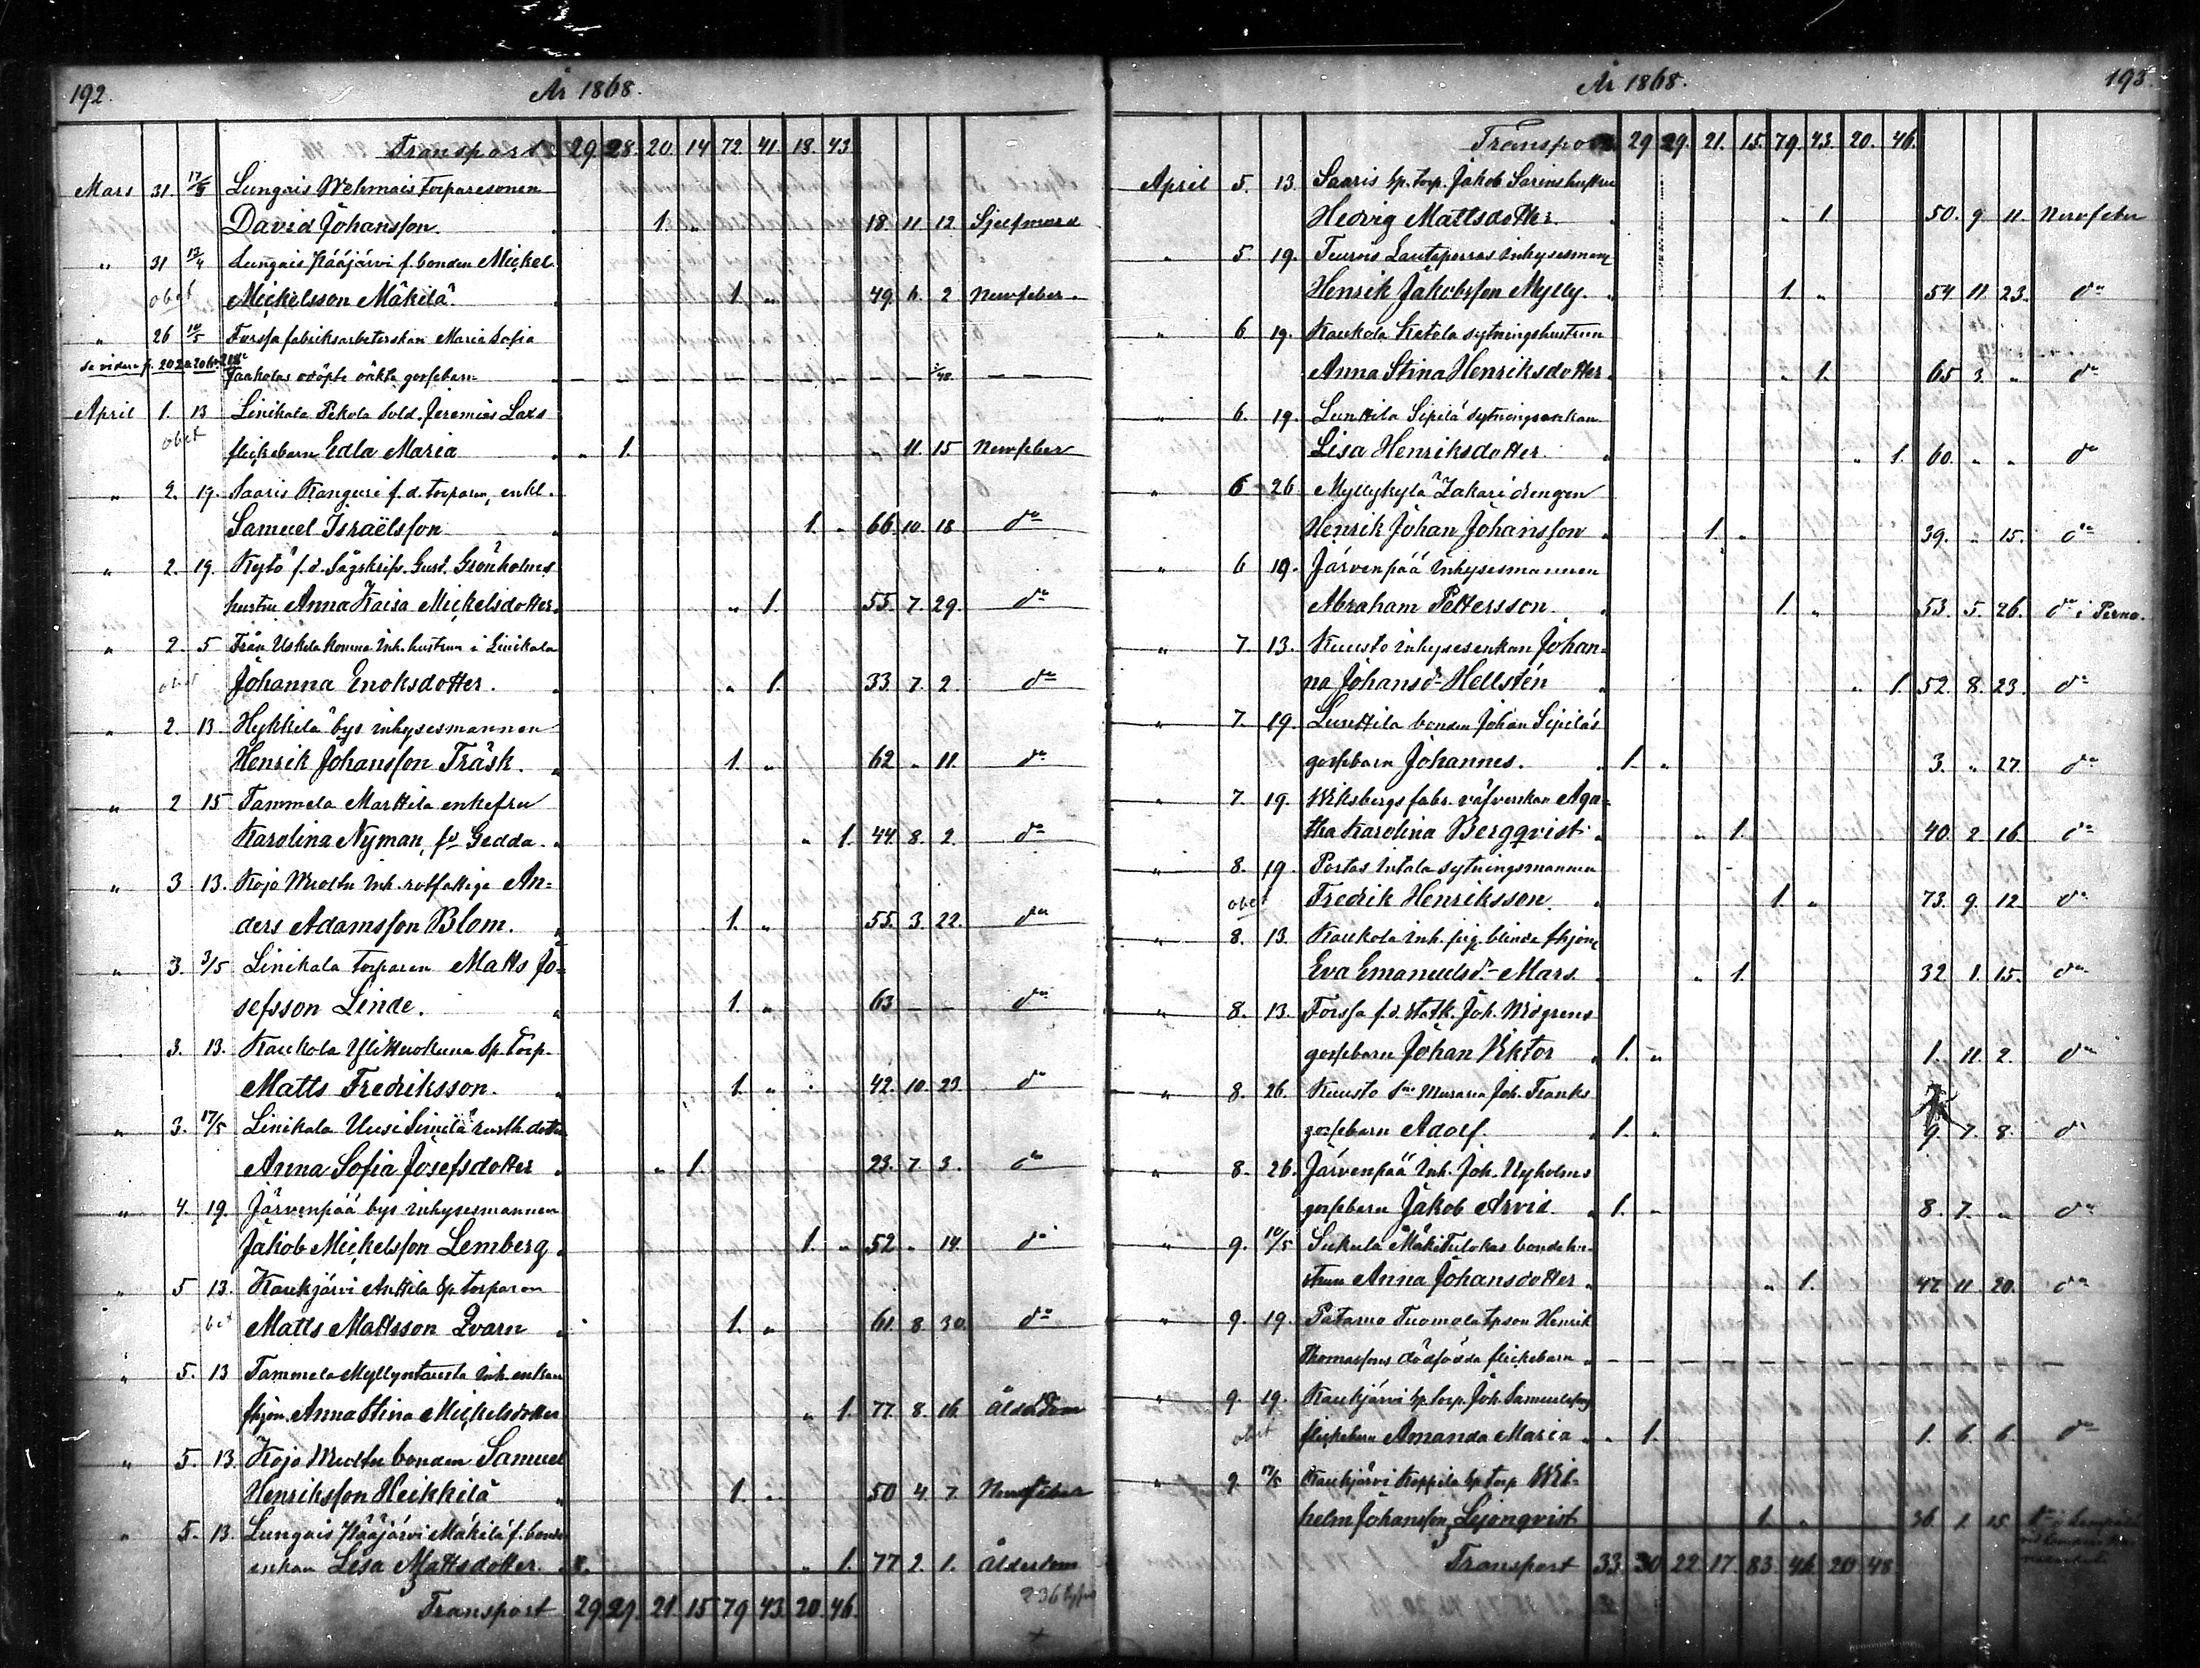 192.
År 1868.
Transport 29 28. 20. 14 72 41. 18. 43.
Mars 31. 17/5 Lungais Wehmais torparesonen
David Johansson. 1. „ 18. 11 12. Sjelfmord
„ 31 13/4 Lungais Pääjärvi f. bonden Mickel
obet Mickelsson Mäkilä. 1. „ 49. 6. 2 Nervfeber.
„ 26 10/5 Forssa fabriksarbeterskan Maria Sofia
Jaakolas odöpta oäkta gossebarn
April 1. 13 Linikala Pekola sold. Jeremias Laxs
obet flickebarn Edla Maria „ 1. „ 11. 15 Nervfeber
„ 2. 19. Saaris Kanguri f. d. torparen, enkl.
Samuel Israëlsson 1. „ 66 10. 18 do
„ 2. 19. Kytö f. d. Sågskrifv. Gust. Grönholms
hustru Anna Kaisa Mickelsdotter. „ 1. 55. 7. 29. do
„ 2. 5 Från Uskela komna Inh. hustrun i Linikala
obet Johanna Enoksdotter. „ 1. 33. 7. 2. do
„ 2. 13. Hykkilä bys inhysesmannen
Henrik Johansson Träsk. 1. „ 62 „ 11. do
„ 2 15 Tammela Marttila enkefru
Karolina Nyman, fd Gedda. „ 1. 44. 8. 2. do
„ 3 13. Kojo Wuoltu Inh. rotfattige An=
ders Adamsson Blom. 1. „ 55. 3. 22. do
„ 3. 3/5 Linikala torparen Matts Jo=
sefsson Linde. 1. „ 63 — — do
3. 13. Kaukola Ylittuokuna Sp. Torp.
Matts Fredriksson. 1. „ 42. 10. 23 do
„ 3. 17/5 Linikala Uusi Simila rusth. dotter
Anna Sofia Josefsdotter „ 1. 23. 7. 3. do
„ 4. 19. Järvenpää bys inhysesmannen
Jakob Mickelsson Lemberg 1. „ 52 „ 14. do
„ 5 13. Kaukjärvi Anttila Sp torparen
obet Matts Mattsson Qvarn 1. „ 61. 8. 30. do
„ 5. 13 Tammela Myllyntausta Inh. enkan
Anna Stina Mickelsdotter „ 1. 77. 8. 16. Ålderdom
„ 5. 13. Kojo Wuoltu bonden Samuel
Henriksson Heikkilä 1. „ 50 4. 7. Nervfeber
„ 5. 13. Lungais Pääjärvi Mäkilä f. bonde
enkan Lisa Mattsdotter. „ 1. 77 2. 1. Ålderdom
Transport 29 29. 21. 15 79 43. 20. 46.
År 1868.
193.
Transport 29 29. 21. 15. 79. 43. 20. 46.
April 5. 13. Saaris Sp. torp. Jakob Sarins hustru
Hedvig Mattsdotter. „ 1. 50. 9. 11. Nervfeber
„ 5. 19. Teurois Lautaporras Inhysesmannen
Henrik Jakobsson Mylly. 1. „ 54 11 23. do
„ 6 19. Kaukola Ketola sytningshustrun
Anna Stina Henriksdotter. „ 1. 65 3. „ do
„ 6. 19. Lunttila Sipilä sytningsenkan
Lisa Henriksdotter. „ 1. 60. „ „ do
„ 6 26 Myllykylä Zakari drengen
Henrik Johan Johansson 1. „ 39. „ 15. do
„ 6 19. Järvenpää Inhysesmannen
Abraham Pettersson. 1. „ 53. 5. 26. do i Perno.
„ 7. 13. Kuusto inhysesenkan Johan=
na Johansdr Hellstén „ 1. 52. 8. 23. do
„ 7. 19. Lunttila bonden Johan Sipiläs
gossebarn Johannes. 1. „ 3. „ 27. do
„ 7. 19. Wiksbergs fabr. väfverskan Aga=
tha Karolina Bergqvist. „ 1. 40. 2. 16. do
„ 8. 19. Portas Intala sytningsmannen
obet Fredrik Henriksson. 1. „ 73. 9. 12. do
„ 8. 13. Kaukola Inh. pig. blinda
Eva Emanuelsdr Mars. „ 1. 32 1. 15. do
„ 8. 13. Forssa f. d. statk. Joh. Widgrens
gossebarn Johan Viktor 1. „ 1. 11. 2. do
„ 8. 26. Kuusto Muraren Joh. Franks
gossebarn Adolf. 1. „ 9. 7. 8. do
„ 8. 26. Järvenpää Inh. Joh. Nyholms
gossebarn Jakob Arvid. 1. „ 8. 7. „ do
„ 9. 10/5 Sukula MäkiTulokas bondehu-
strun Anna Johansdotter. „ 1. 47. 11. 20. do
„ 9. 19. Patamo Tuomola tpson Henrik
Thomassons dödfödda flickebarn
„ 9. 19. Kaukjärvi Sp. torp. Joh. Samuelssons
obet flickebarn Amanda Maria. „ 1. 1. 6. 6. do
„ 9. 17/5 Kaukjärvi Koppila Sp torp Wil-
helm Johansson Lejonqvist 1. „ 36. 1. 15.
Transport 33. 30 22. 17. 83. 46. 20 48